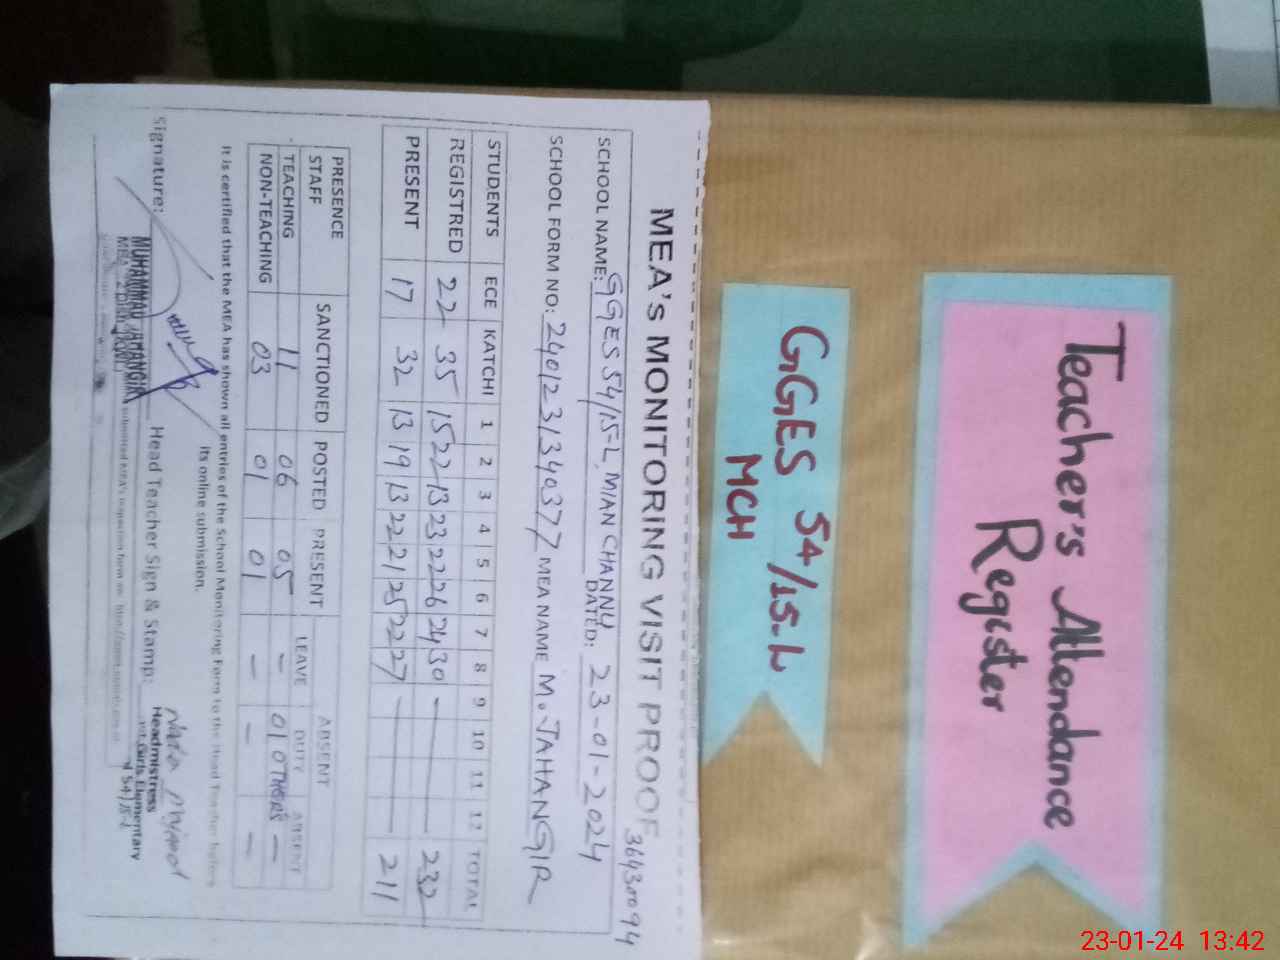 Teacher's Attendance
Register
GGES 54/15-L
MCH
36430094
MEA's MONITORING VISIT PROOF
SCHOOL NAME: GGES 54/15-L, MIAN CHANNU DATED: 23-01-2024
SCHOOL FORM NO: 240123134037 MEA NAME M. JAHANGIR
STUDENTS ECE KATCHI 1 2 3 4 5 6 7 8 9 10 11 12 TOTAL
REGISTRED 22 35 15 22 13 23 22 26 24 30 — — — — 232
PRESENT 17 32 13 19 13 22 21 25 22 27 — — — — 211
PRESENCE STAFF SANCTIONED POSTED PRESENT ABSENT
LEAVE DUTY ABSENT
TEACHING 11 06 05 — 01 OTHERS —
NON-TEACHING 03 01 01 — — —
It is certified that the MEA has shown all entries of the School Monitoring Form to the Head Teacher before
its online submission.
Signature: Head Teacher Sign & Stamp:
MUHAMMAD JAHANGIR
Headmistress
Girls Elementary
54/15-L
23-01-24 13:42